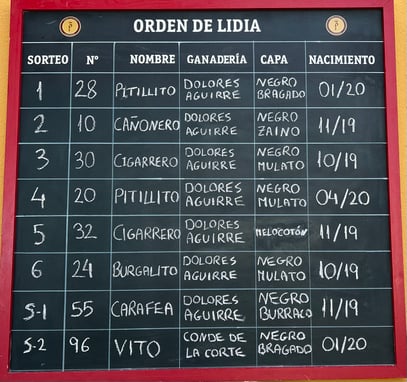 ORDEN DE LIDIA
SORTEO Nº NOMBRE GANADERÍA CAPA NACIMIENTO
1 28 PITILLITO DOLORES AGUIRRE NEGRO BRAGADO 01/20
2 10 CAÑONERO DOLORES AGUIRRE NEGRO ZAINO 11/19
3 30 CIGARRERO DOLORES AGUIRRE NEGRO MULATO 10/19
4 20 PITILLITO DOLORES AGUIRRE NEGRO MULATO 04/20
5 32 CIGARRERO DOLORES AGUIRRE MELOCOTÓN 11/19
6 24 BURGALITO DOLORES AGUIRRE NEGRO MULATO 10/19
S-1 55 CARAFEA DOLORES AGUIRRE NEGRO BURRACO 11/19
S-2 96 VITO CONDE DE LA CORTE NEGRO BRAGADO 01/20